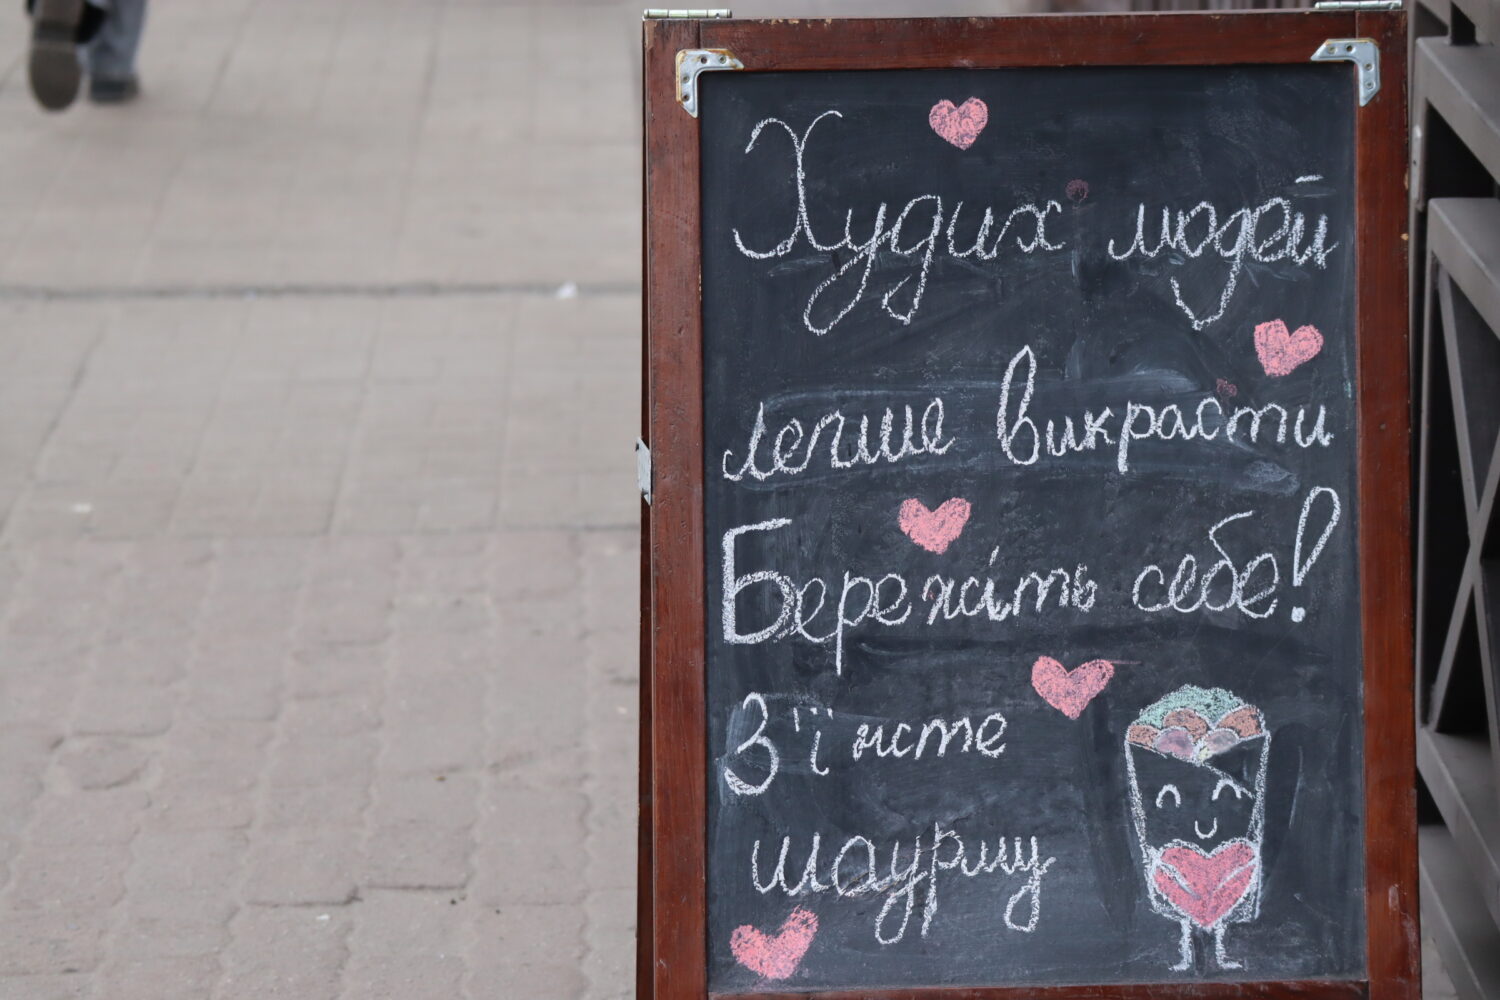 Худих людей
легше викрасти
Бережіть себе!
З'їжте
шаурму